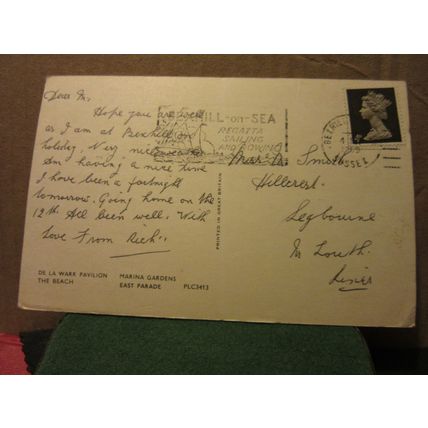 Dear M,
Hope you are well
as I am at Bexhill on
holiday. Very nice weather
Am having a nice time
I have been a fortnight
tomorrow. Going home on the
12th All been well. With
Love From Rich
HILL-on-SEA
REGATTA
SAILING
AND ROWING
Smith
Hillcrest.
Legbourne
Nr Louth
Lincs
PRINTED IN GREAT BRITAIN
DE LA WARR PAVILION MARINA GARDENS
THE BEACH EAST PARADE PLC3413